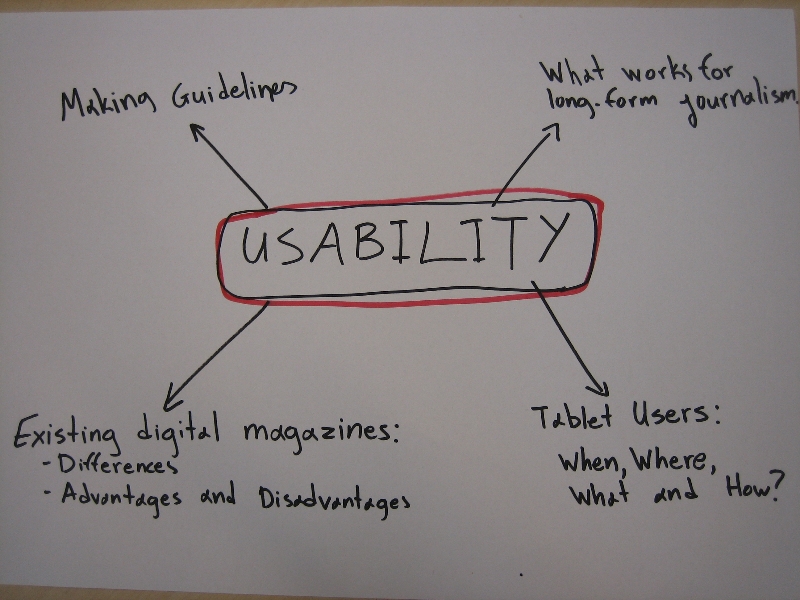 Making Guidelines
What works for
long-form journalism.
USABILITY
Existing digital magazines:
- Differences
- Advantages and Disadvantages
Tablet Users:
When, Where,
What and How?